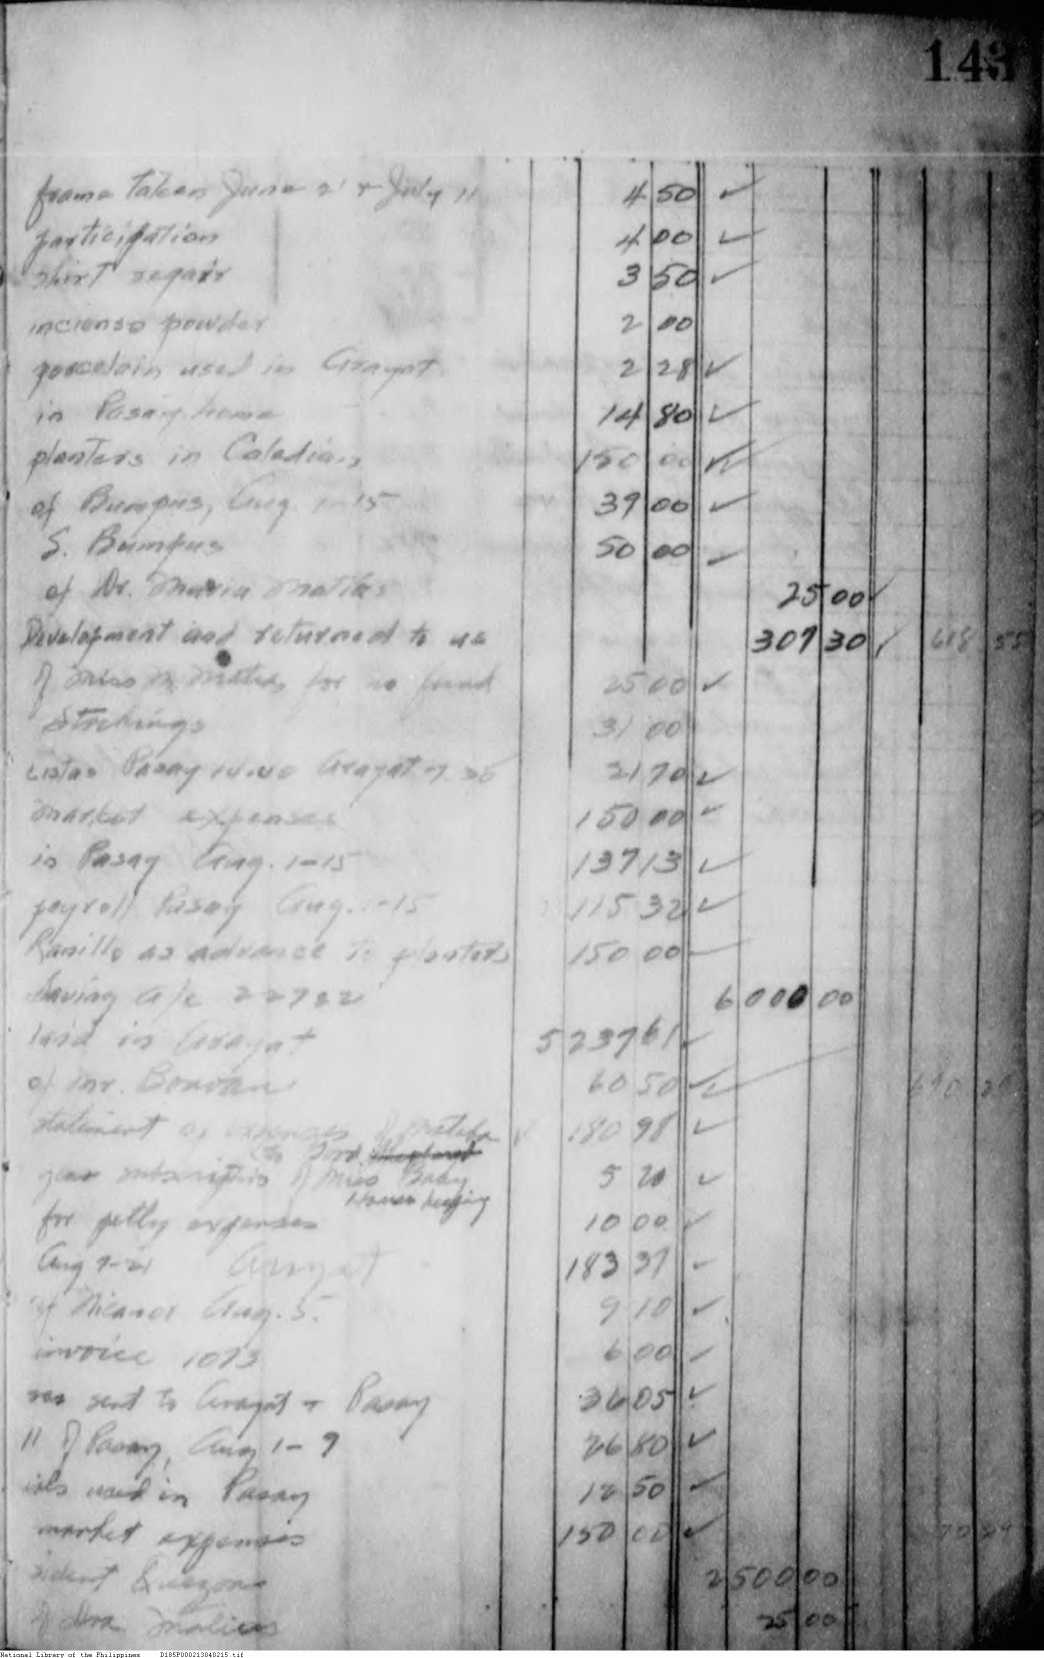 143
frame taken June 21 & July 11 4 50 ✓
participation 4 00 ✓
shirt repair 3 50 ✓
incienso powder 2 00
porcelain used in Arayat 2 28 ✓
in Pasay home 14 80 ✓
planters in Caledian 150 00 ✓
of Bumpus, Aug. 1-15 39 00 ✓
S. Bumpus 50 00 ✓
of Dr. Maria 25 00 ✓
Development and returned to us 307 30 ✓ 618 55
of Miss M. for no fund 25 00 ✓
Stockings 31 00
Pasay 14.40 Arayat 21 70 ✓
market expenses 150 00 ✓
in Pasay Aug. 1-15 137 13 ✓
payroll Pasay Aug. 1-15 115 32 ✓
Ranillo as advance to planters 150 00
Saving a/c 22722 6 000 00
land in Arayat 5 237 61 ✓
of Mr. 60 50 ✓
statement of expenses of 180 98 ✓
to Ford
year subscription of Miss Baby 5 20 ✓
House keeping
for petty expenses 10 00 ✓
Aug 7-21 Arayat 183 37 ✓
of Nicanor Aug. 5. 9 10 ✓
invoice 1073 6 00 ✓
sent to Arayat & Pasay 36 05 ✓
11 of Pasay, Aug 1-9 26 80 ✓
used in Pasay 12 50 ✓
market expenses 150 00 ✓
sident Quezon 2 500 00
of Dra 25 00
National Library of the Philippines D185P000213040215.tif